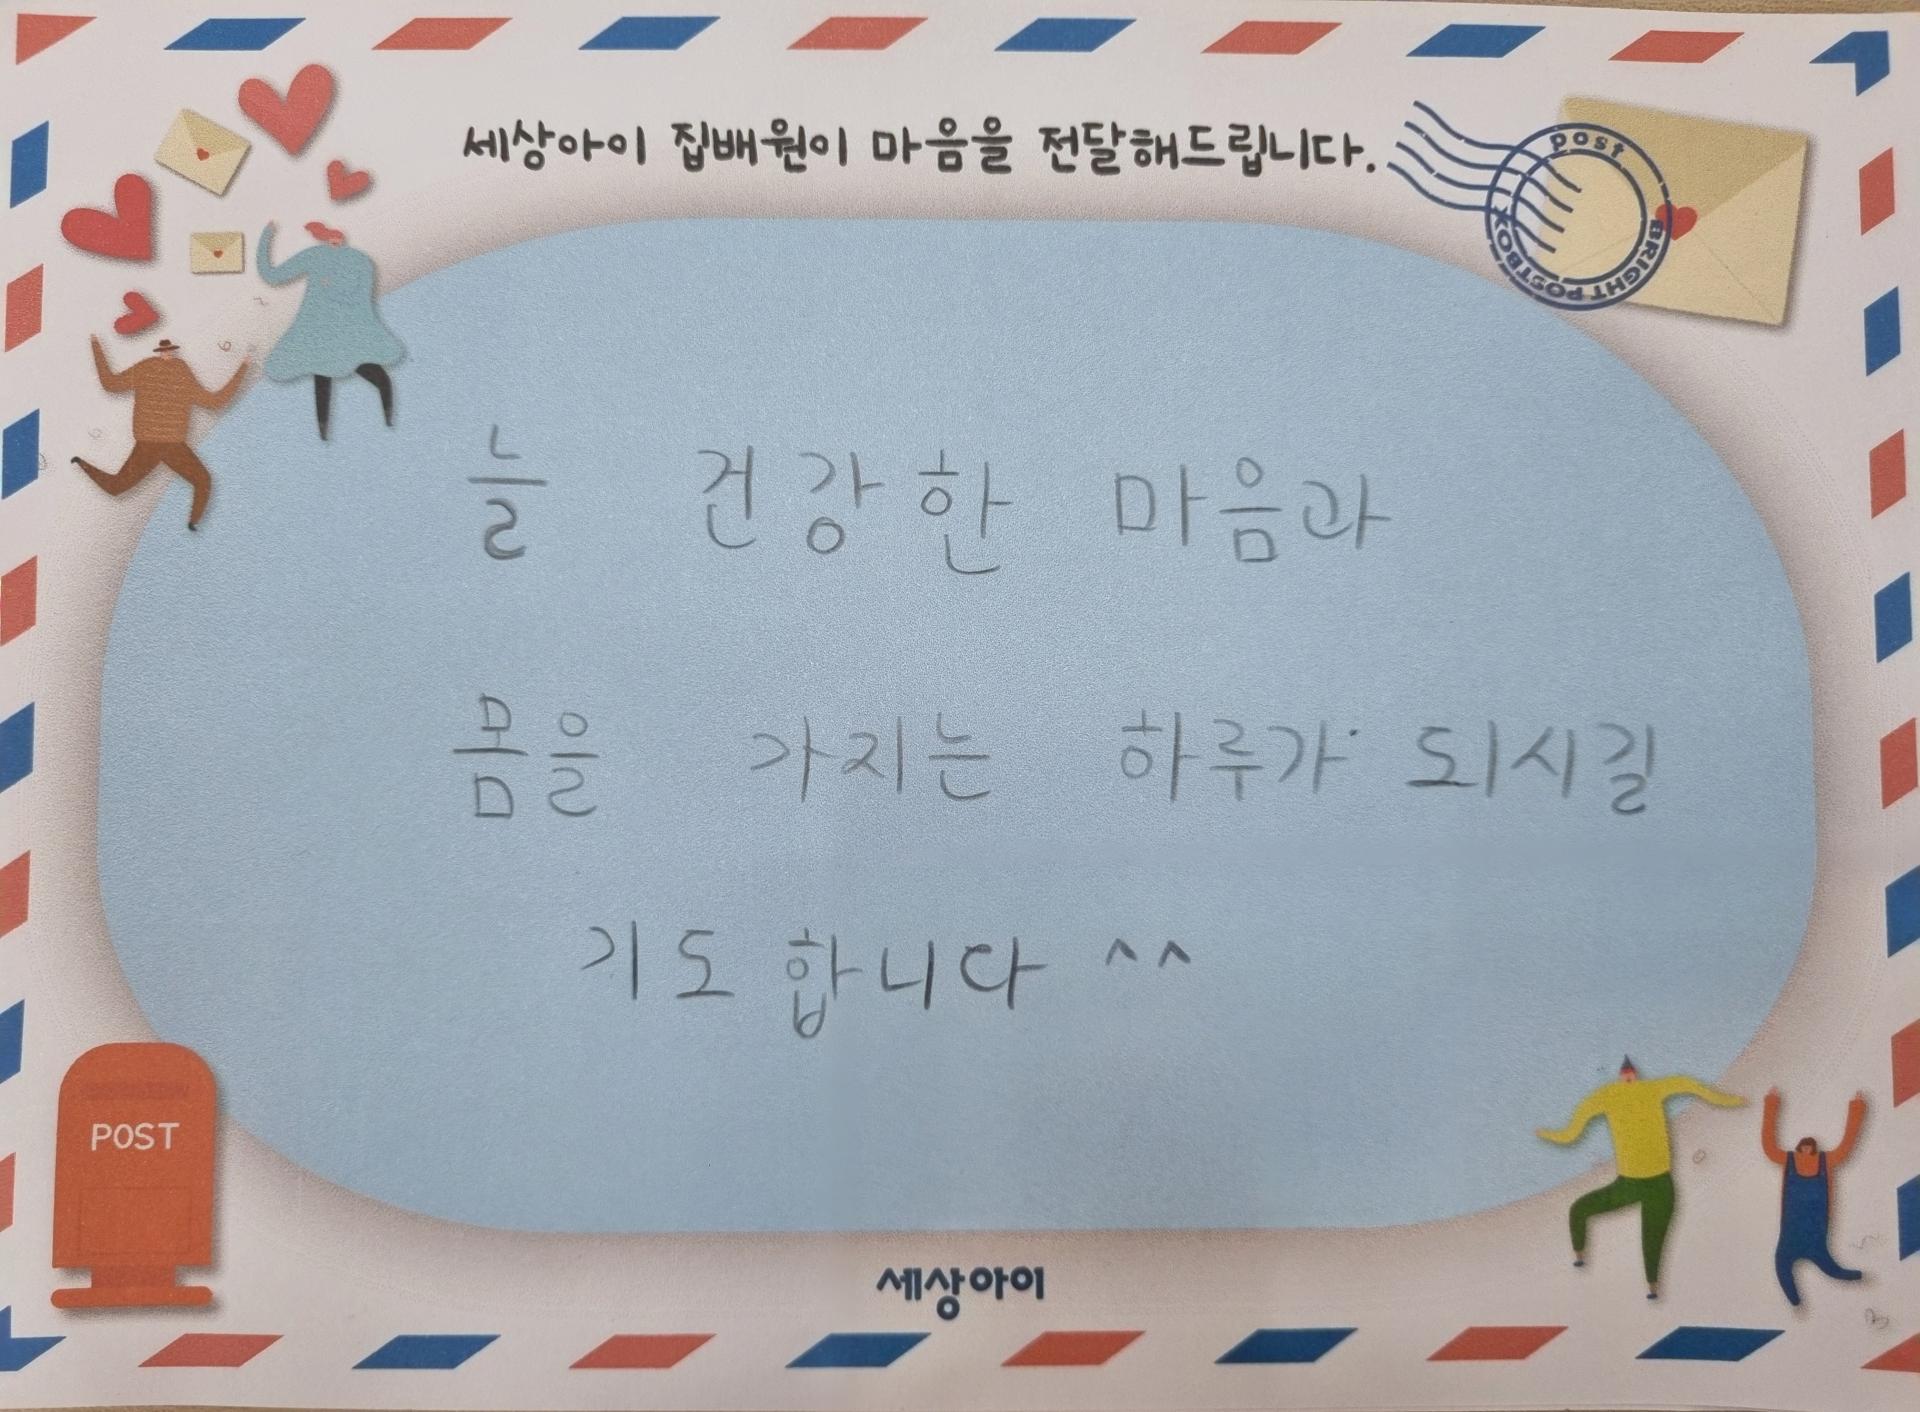 세상아이 집배원이 마음을 전달해드립니다.
post
BRIGHT POSTBOX
늘 건강한 마음과
몸을 가지는 하루가 되시길
기도합니다 ^^
POST
세상아이